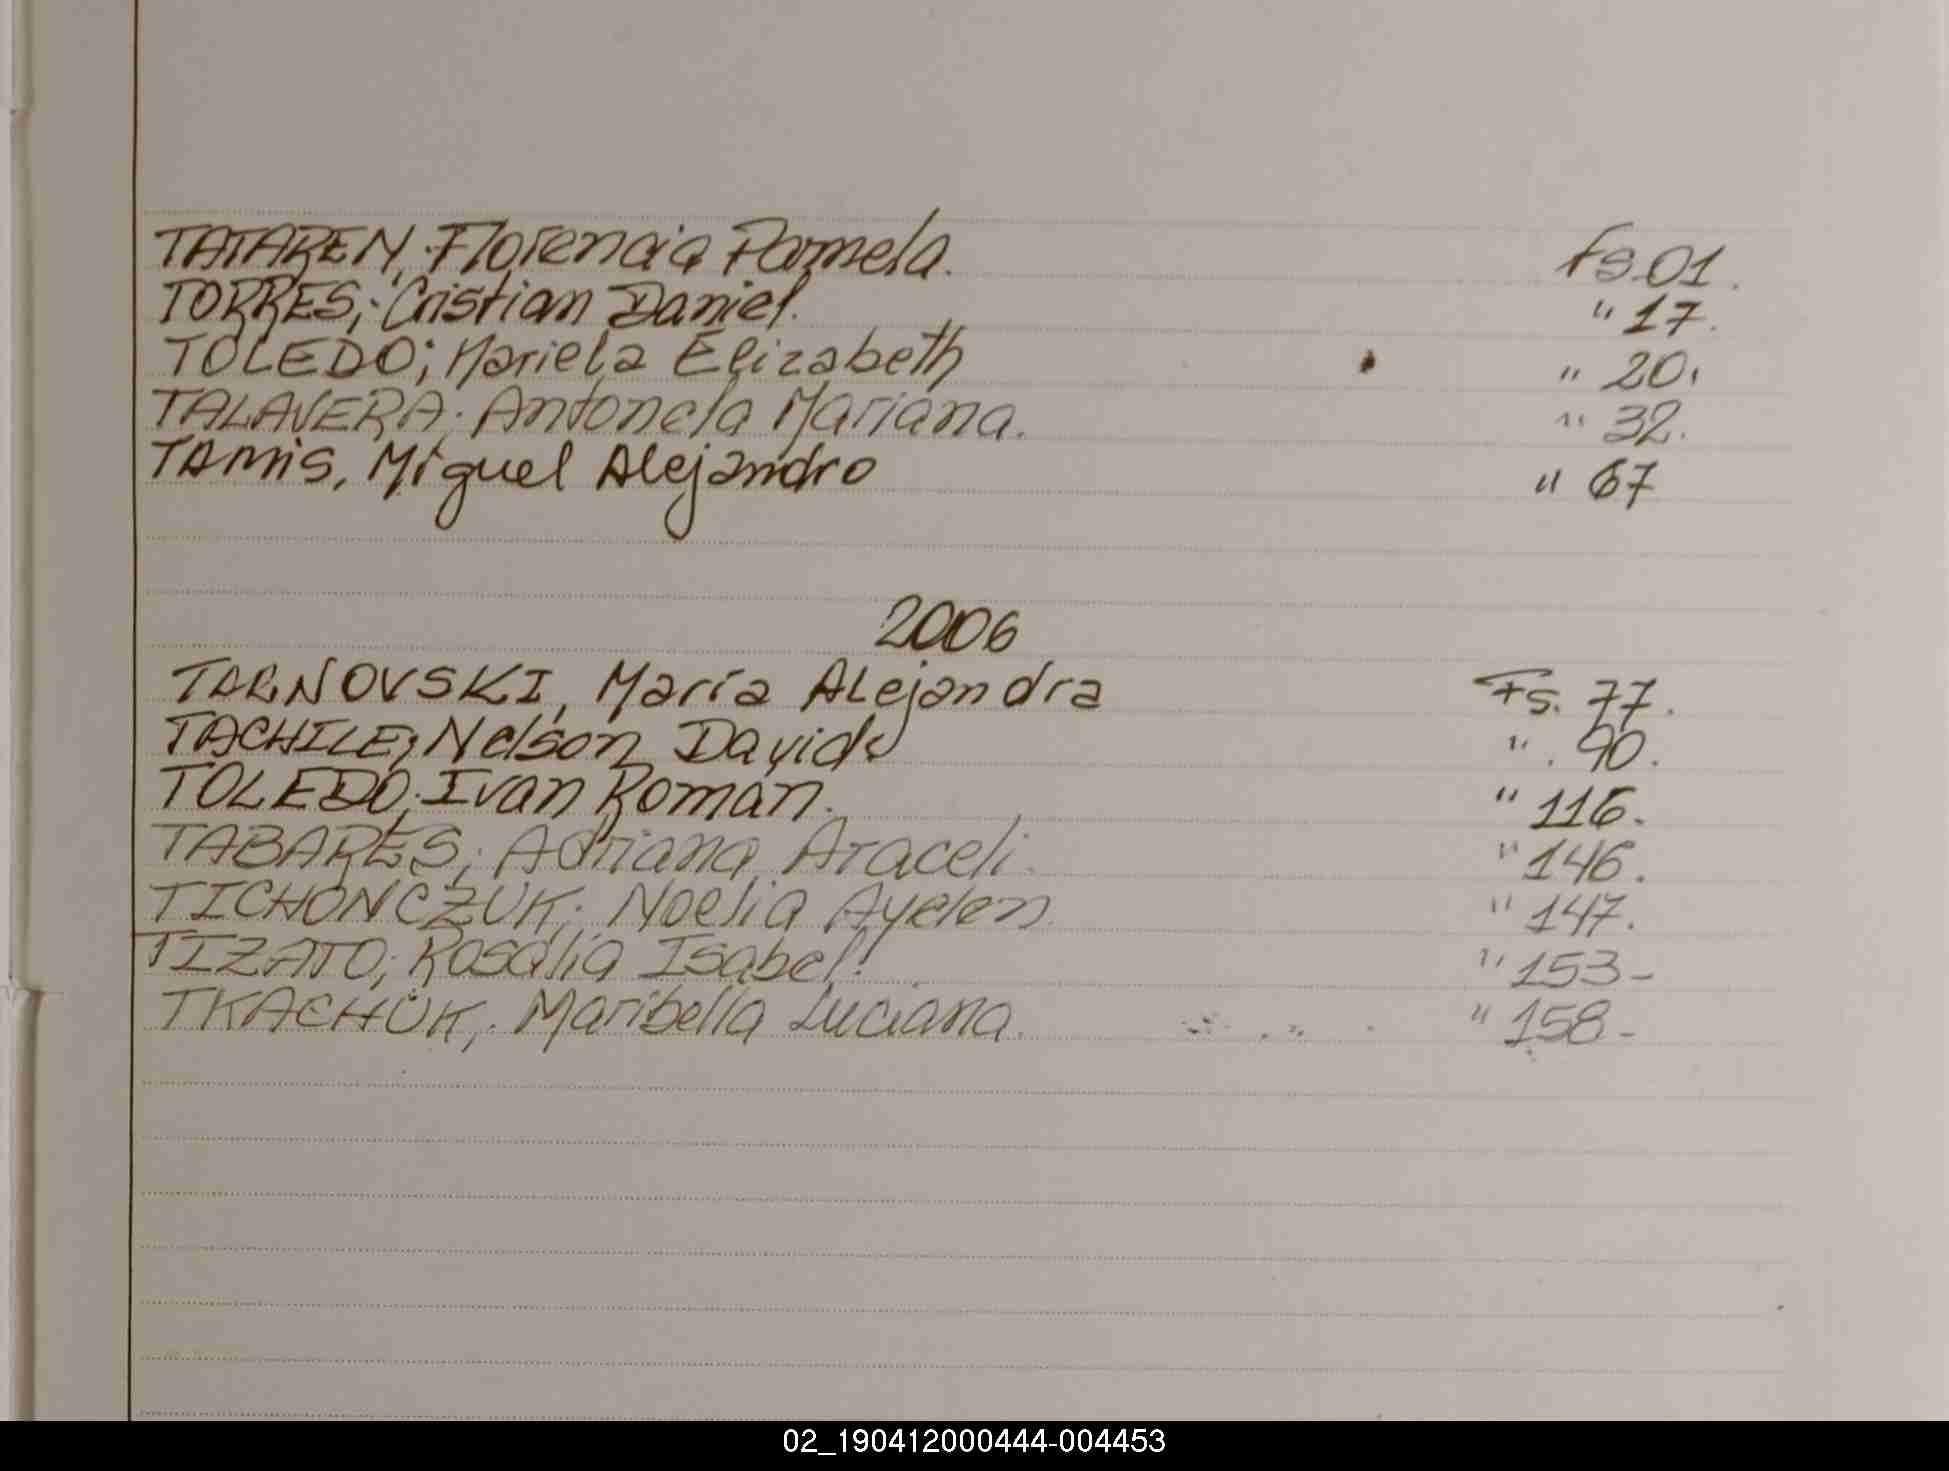 TATAREN, Florencia Pamela. Fs.01.
TORRES; Cristian Daniel. " 17.
TOLEDO; Mariela Elizabeth " 20.
TALAVERA; Antonela Mariana. " 32.
TAMIS, Miguel Alejandro " 67
2006
TARNOVSKI, María ALejandra Fs. 77.
TACHILE, Nelson David " . 90.
TOLEDO; Ivan Roman. " 116.
TABARES; Adriana Araceli. " 146.
TICHONCZUK; Noelia Ayelen. " 147.
TIZATO; Rosalia Isabel. " 153-
TKACHUK; Maribella Luciana. " 158-
02_190412000444-004453